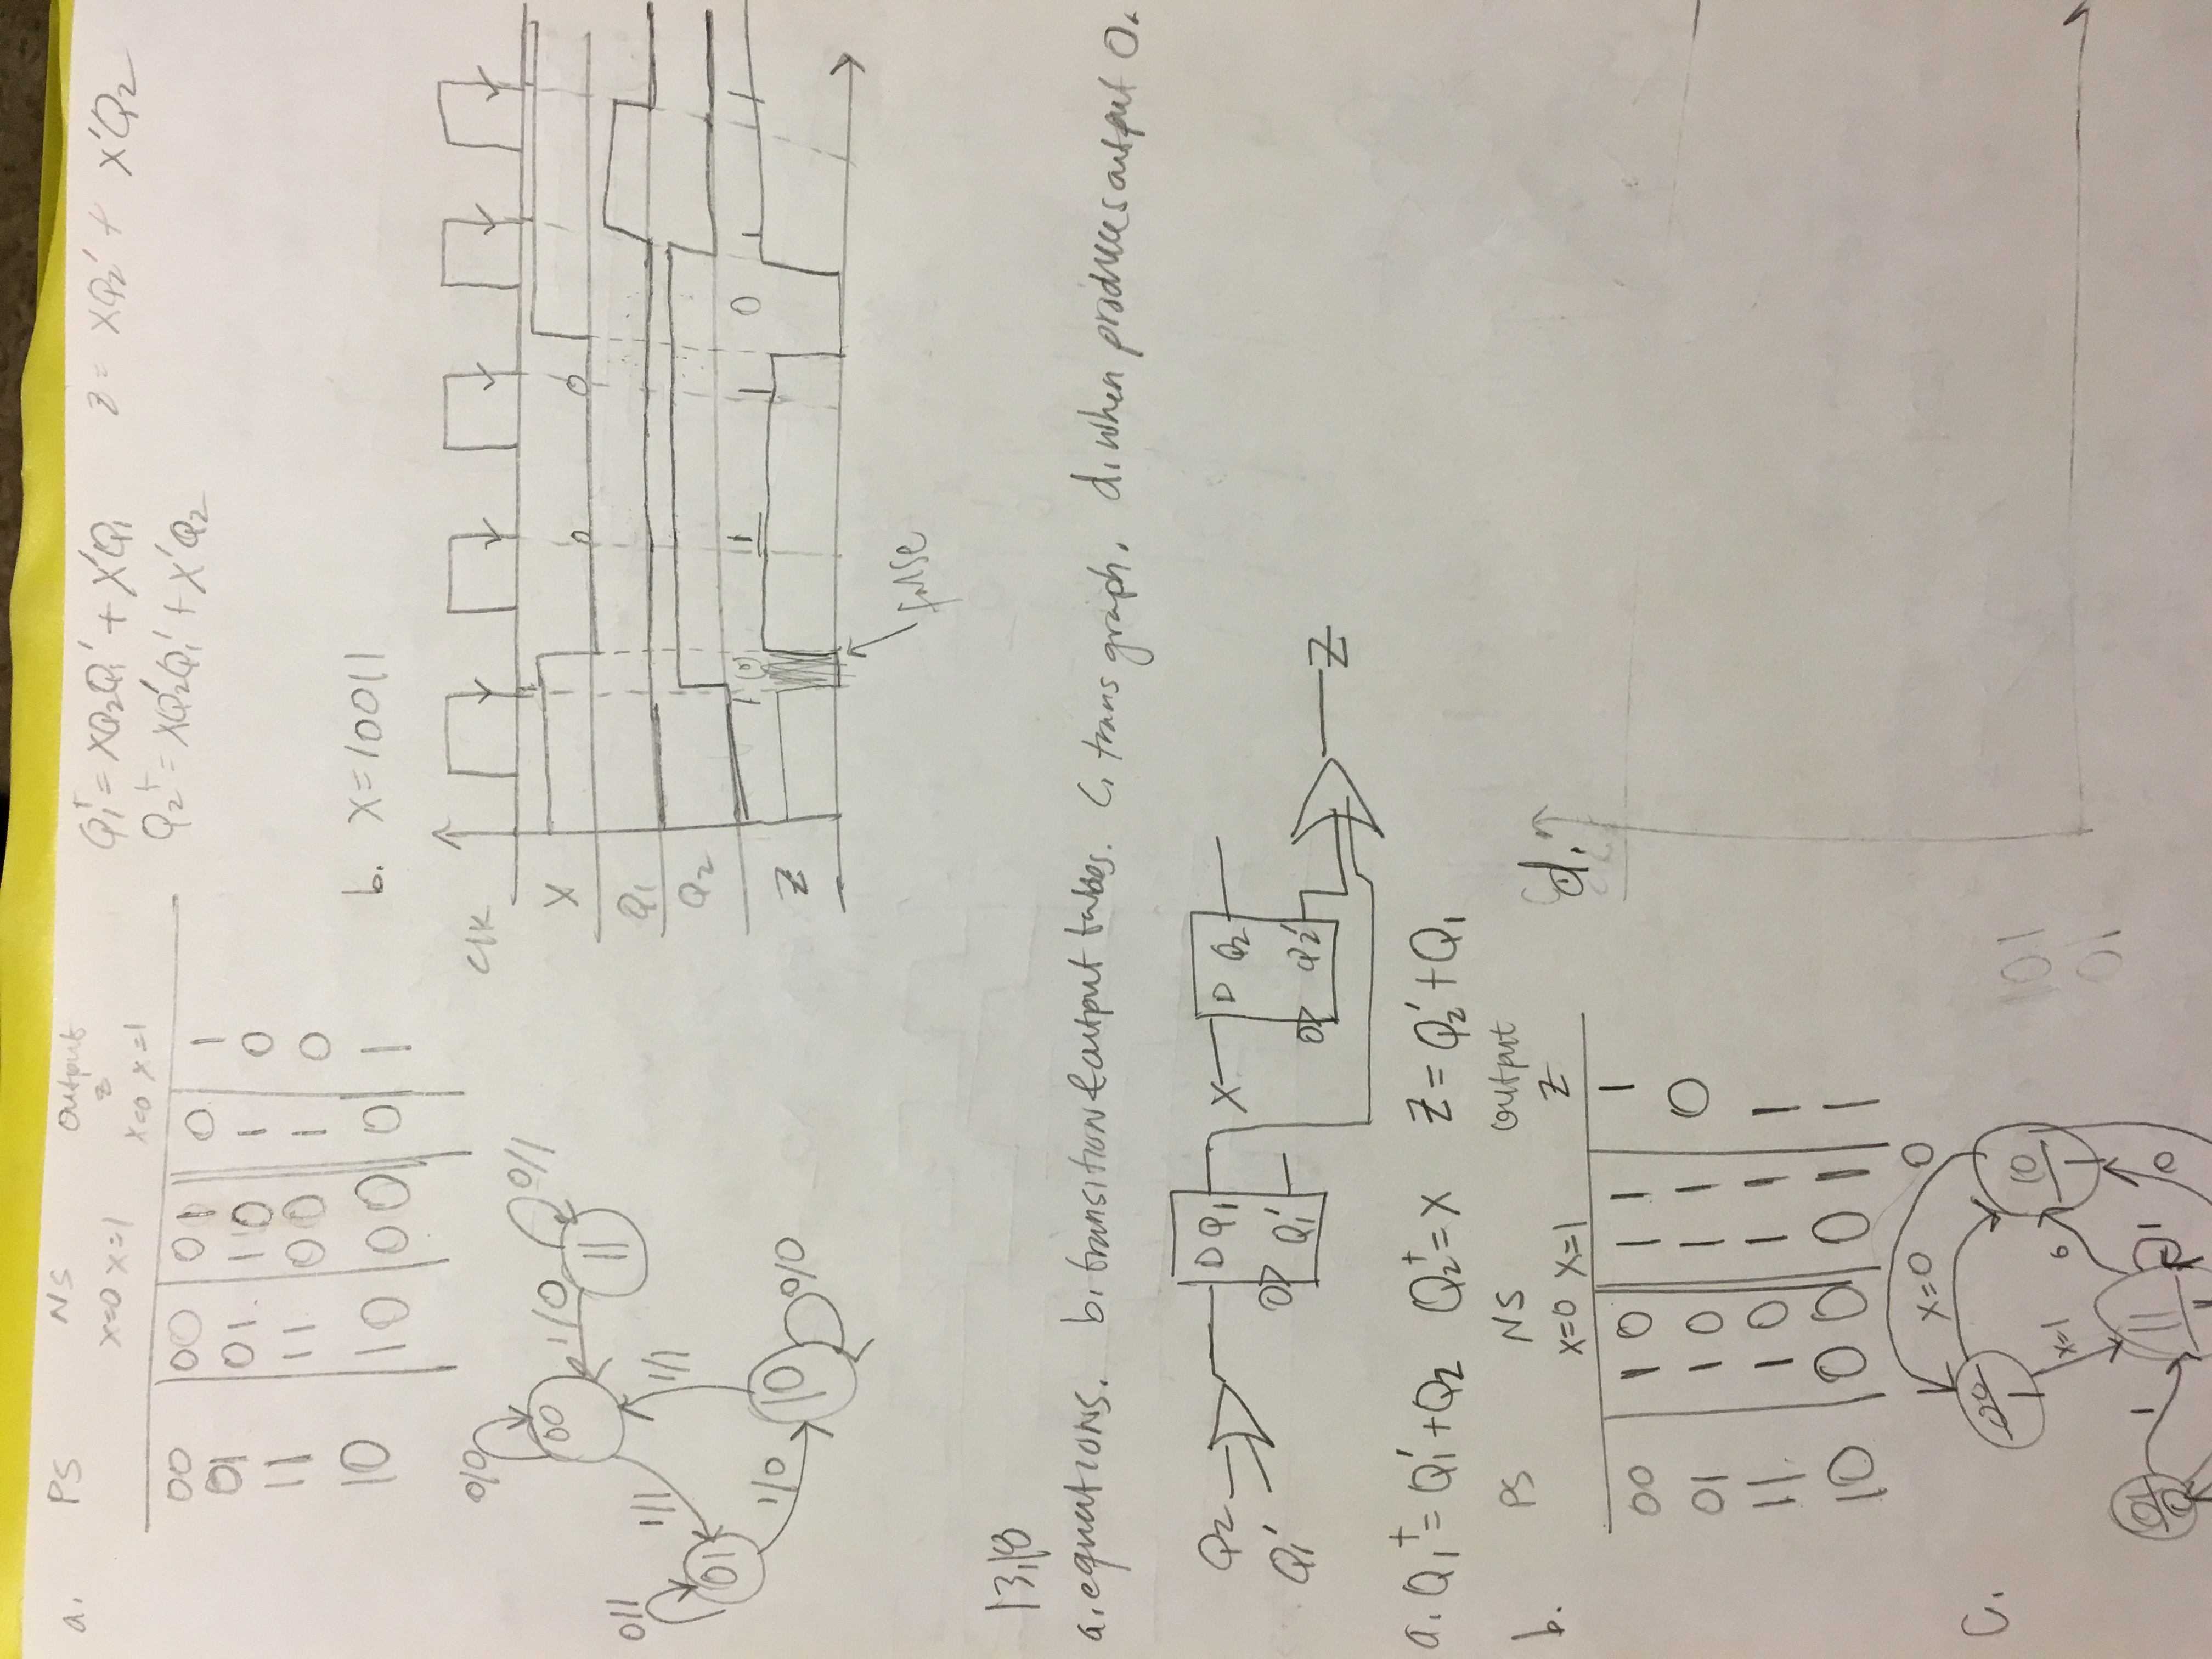 a. PS NS Output
z
x=0 x=1 x=0 x=1
00 00 01 0 1
01 01. 10 1 0
11 11 00 1 0
10 10 00 0 1
Q1+ = XQ2Q1' + X'Q1 z = XQ2' + X'Q2
Q2+ = XQ2'Q1' + X'Q2
b. X=10011
0/0
00
1/0
0/1
11
0/1
1/1
1/1
01
1/0
10
0/0
Clk
X 0 0
Q1
Q2
1 0 1 1 0 1 1
Z
false
13.18
a. equations. b. transition & output tables. c. trans graph. d. when produces output 0.
Q2 D Q1 X D Q2
Q1' Q1' Q2' Z
a. Q1+ = Q1'+Q2 Q2+ = X Z = Q2'+Q1
b. PS NS Output
x=0 x=1 Z
00 10 11 1
01 10 11 0
11. 10 11 1
10 00 01 1
d.
C.
x=0 0
00
1
10
1
x=1 0
01
0
1
11
1
1
0
101
10